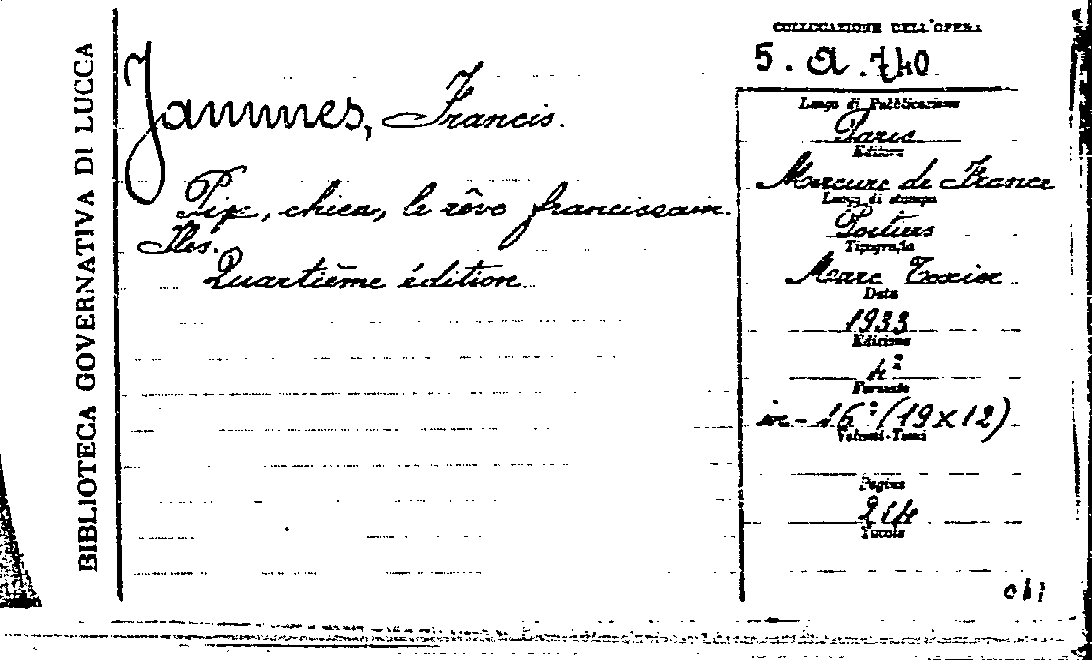 BIBLIOTECA GOVERNATIVA DI LUCCA
Jammes, Francis.
Pipe, chien, le rêve franciscain.
Iles.
Quartième édition
COLLOCAZIONE DELL'OPERA
5. a. 740
Luogo di Pubblicazione
Paris
Editore
Mercure de France
Luogo di stampa
Poitiers
Tipografia
Marc Texier
Data
1933
Edizione
4ª
Formato
in-16º (19x12)
Volumi-Tomi
Pagine
214
Tavole